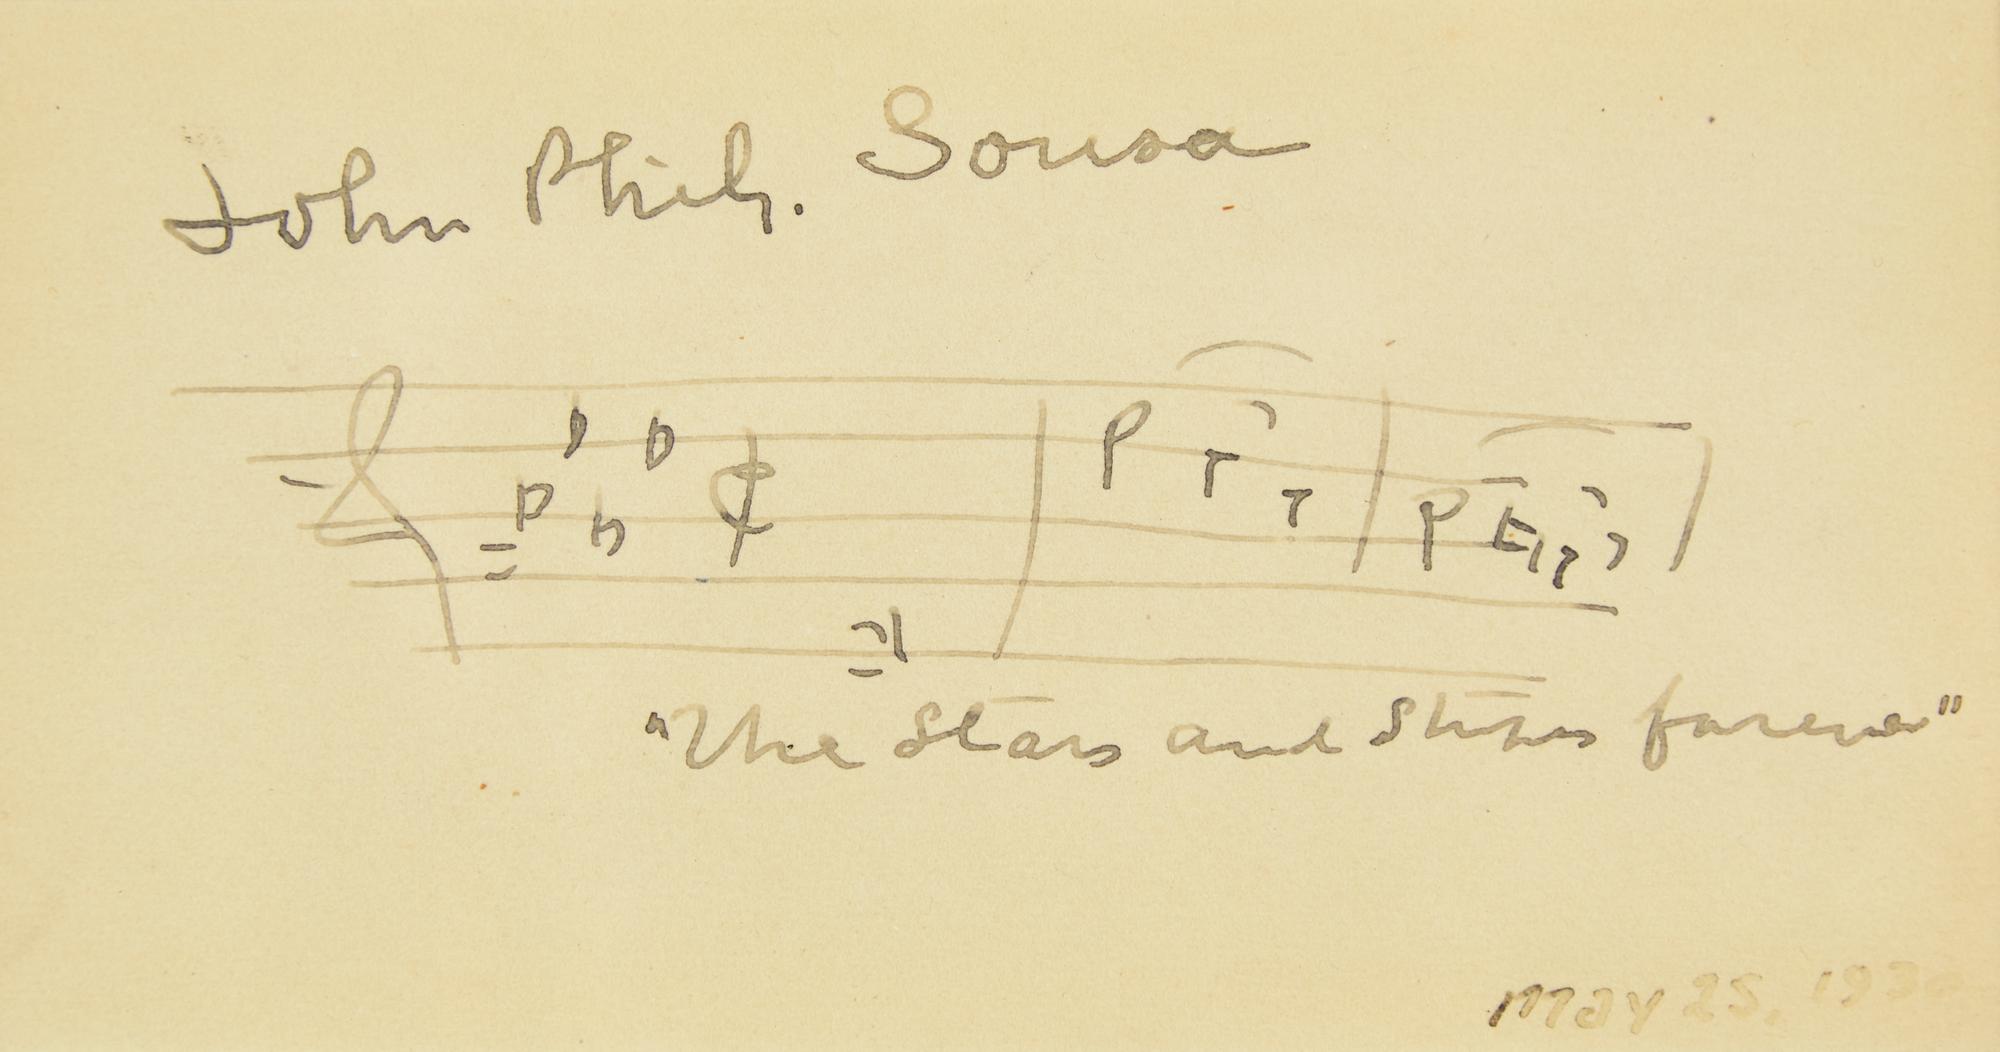 John Phil. Sousa
"The Stars and Stripes forever"
May 25, 1930